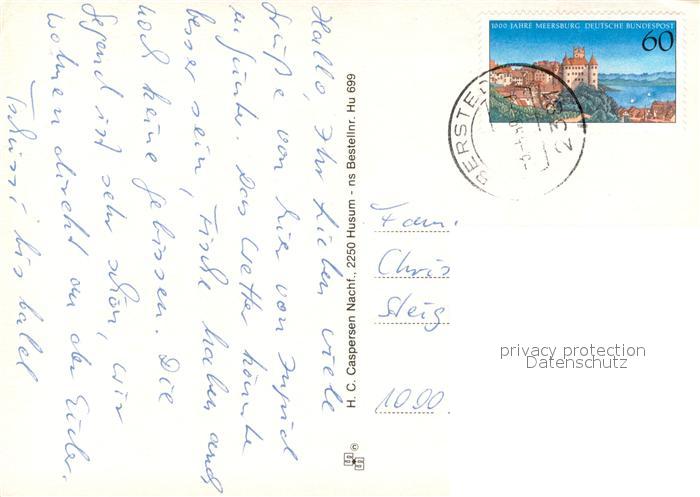 Hallo, Ihr Lieben viele
Grüße von hier von
Das Wetter könnte
besser sein, Fische haben auch
noch keine gebissen. Die
Gegend ist sehr schön, wir
wohnen direkt an der Eider.
Tschüssi bis bald
H. C. Caspersen Nachf., 2250 Husum - ns Bestellnr. Hu 699
©
1000 JAHRE MEERSBURG DEUTSCHE BUNDESPOST
60
BERSTE
2381
Fam.
Chris
Steig
1000
privacy protection
Datenschutz